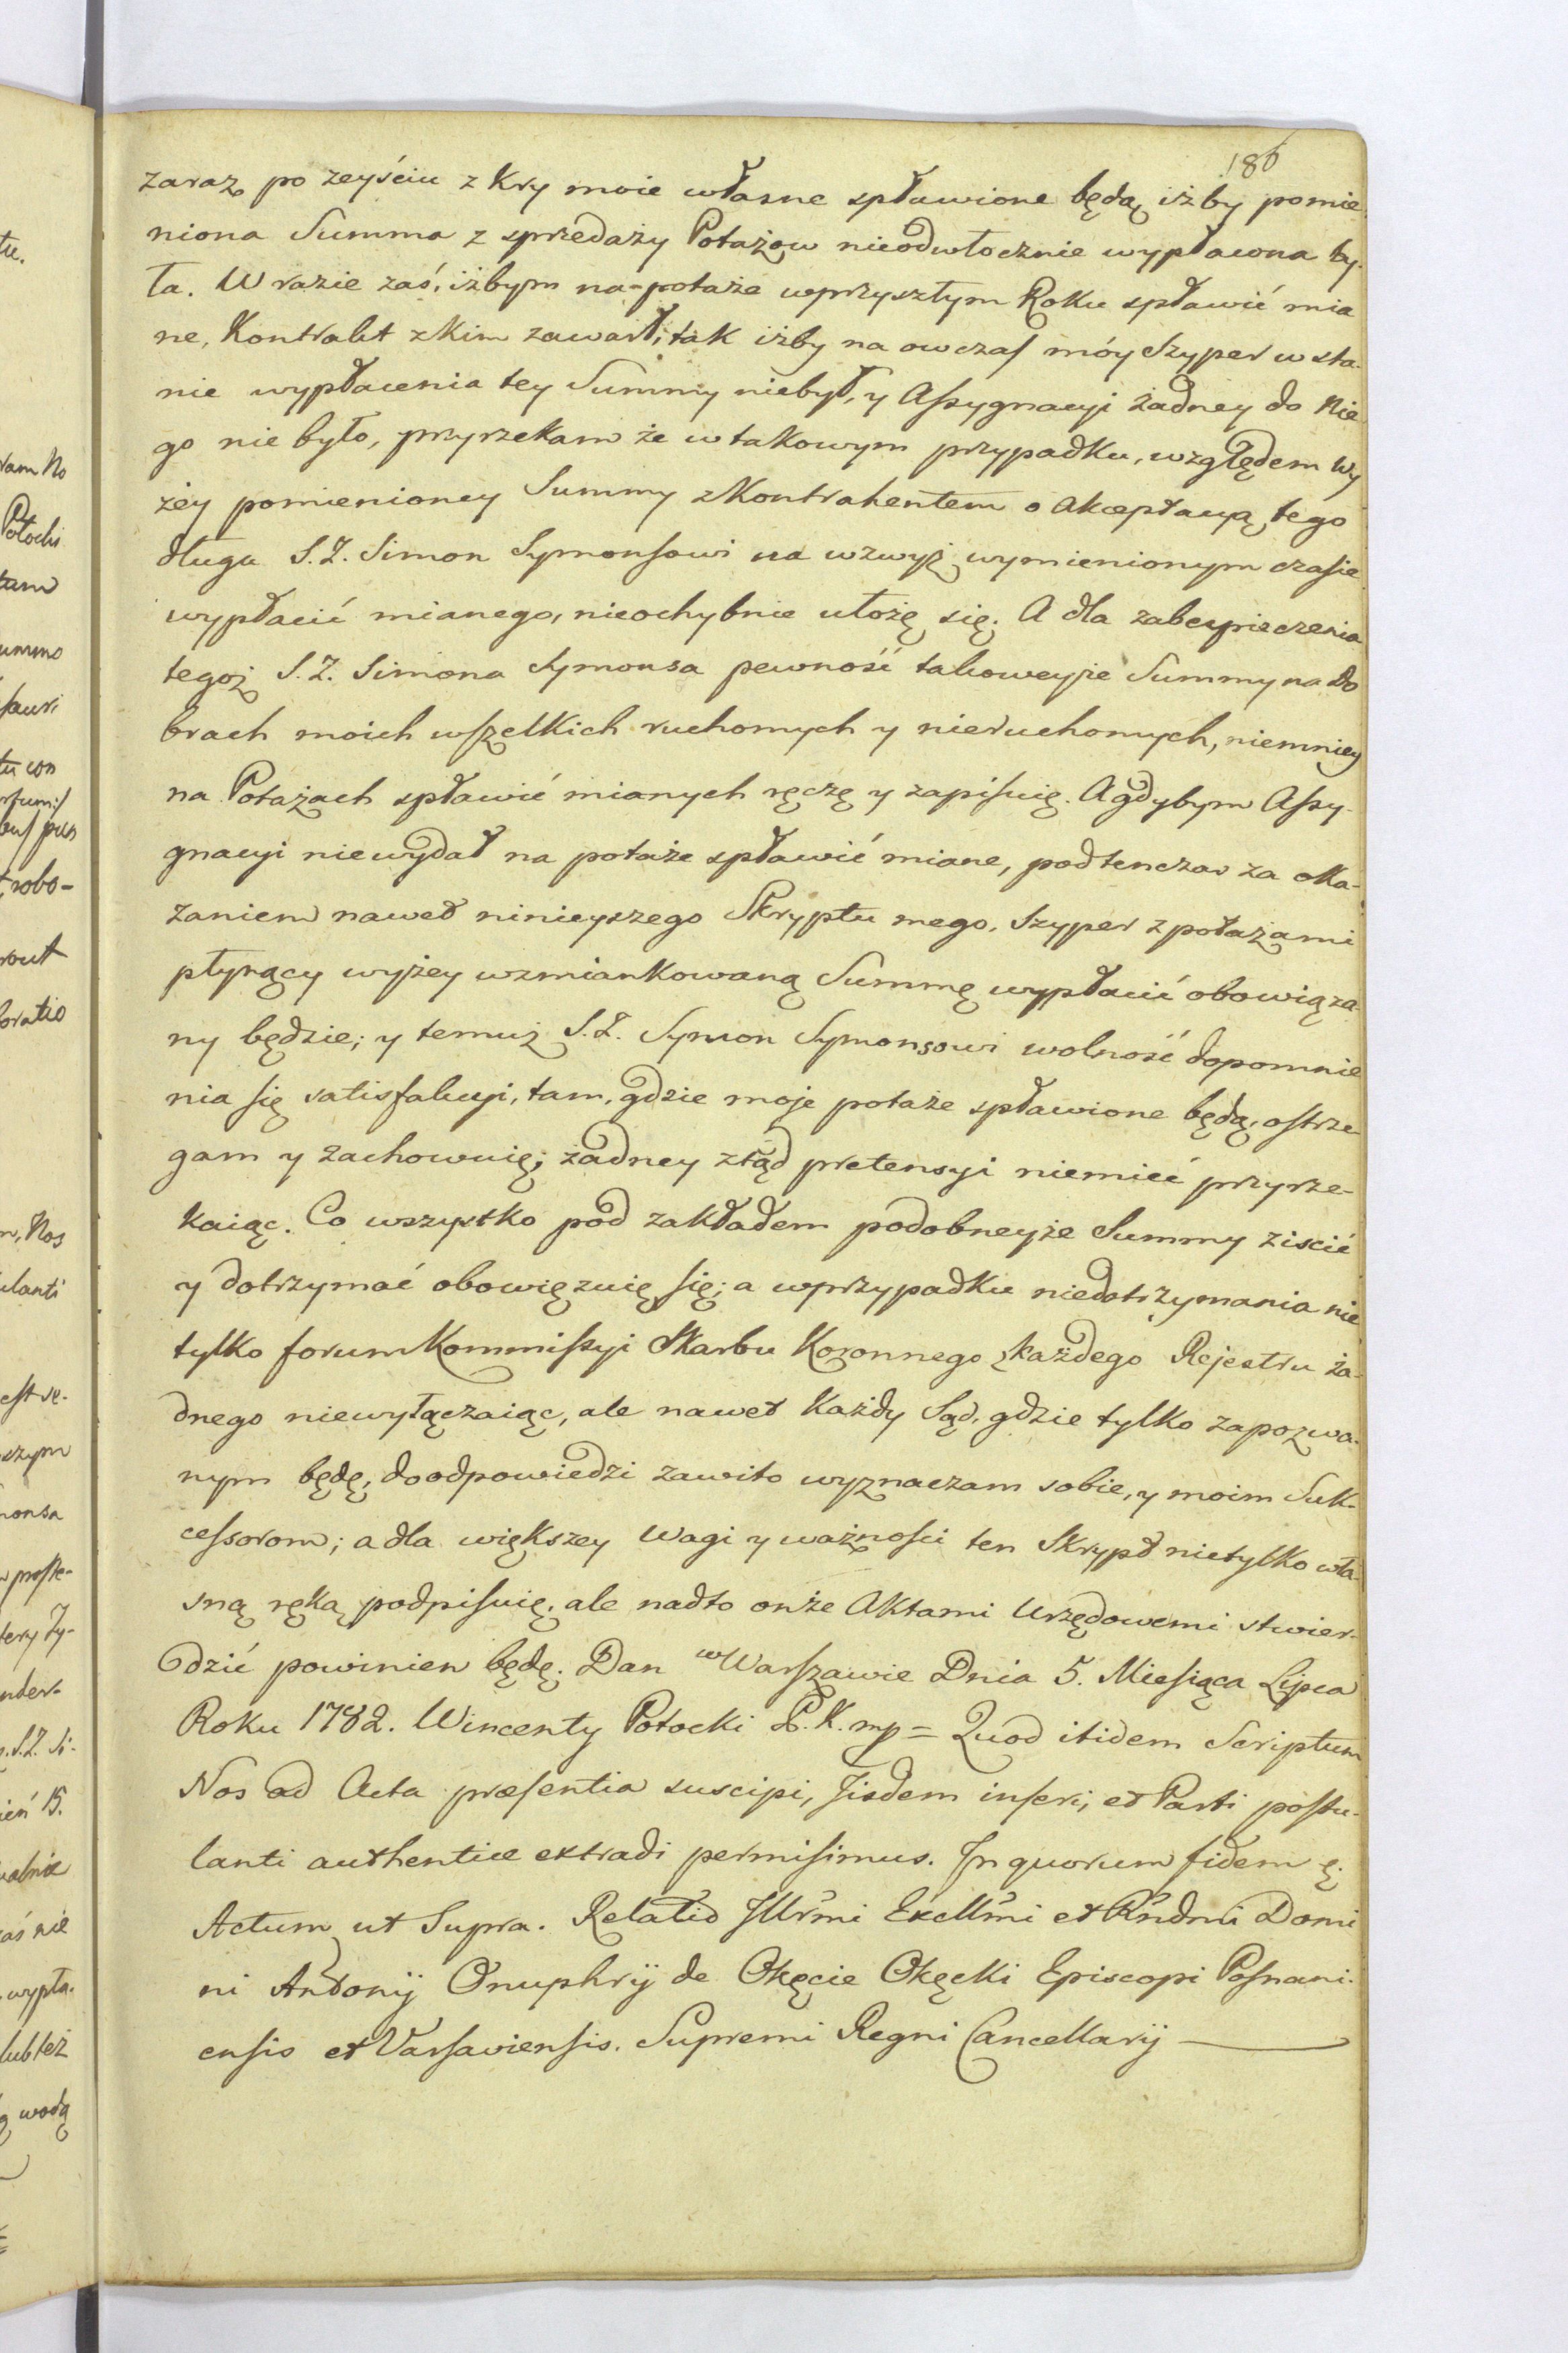 186
zaraz po zeyściu z Kry moie własne spławione będą, iżby pomie
niona Summa z sprzedaży Potażow nieodwłocznie wypłacona by-
ła. W razie zaś, iżbym na potaże w przyszłym Roku spławić mia
ne, Kontrakt z Kim zawarł, tak iżby na owczas móy Szyper w sta-
nie wypłacenia tey Summy niebył, y Assygnacyi żadney do Nie
go nie było, przyrzekam że w takowym przypadku, względem Wy
żey pomienioney Summy z Kontrahentem o Akceptacyą tego
długu S. Z. Simon Symonsowi na wzwyż wymienionym czasie
wypłacić mianego, nieochybnie ułożę się. A dla zabespieczenia
tegoż S. Z. Simona Symonsa pewność takoweyże Summy na do
brach moich wszelkich ruchomych y nieruchomych, niemniey
na Potażach spławić mianych ręczę y zapisuię. A gdybym Assy-
gnacyi niewydał na potaże spławić miane, podtenczas za oka-
zaniem nawet ninieyszego Skryptu mego, Szyper z potażami
płynący wyżey wzmiankowaną Summę wypłacić obowiąza
ny będzie; y temuż S. Z. Symon Symonsowi wolność dopomnie
nia się satisfakcyi, tam, gdzie moje potaże spławione będą, ostrze-
gam y zachowuię; żadney ztąd pretensyi niemieć przyrze-
kaiąc. Co wszystko pod zakładem podobneyże Summy ziscić
y dotrzymać obowięzuię się; a w przypadku niedotrzymania nie
tylko forum Kommissyi Skarbu Koronnego z każdego Rejestru ża-
dnego niewyłączaiąc, ale nawet Każdy Sąd, gdzie tylko zapozwa-
nym będę, do odpowiedzi zawito wyznaczam sobie, y moim Suk-
cessorom; a dla większey Wagi y ważności ten Skrypt nietylko wła-
sną ręką podpisuię, ale nadto onże Aktami Urzędowemi stwier-
dzić powinien będę. Dan w Warszawie Dnia 5. Miesiąca Lipca
Roku 1782. Wincenty Potocki P. K. mp = Quod itidem Scriptum
Nos ad Acta præsentia suscipi, Jisdem inseri, et Parti postu-
lanti authentice extradi permisimus. In quorum fidem &.
Actum ut Supra. Relatio Illrmi Excllmi et Rndmi Domi
ni Antonij Onuphrij de Okęcie Okęcki Episcopi Posnani-
ensis et Varsaviensis. Supremi Regni Cancellarij